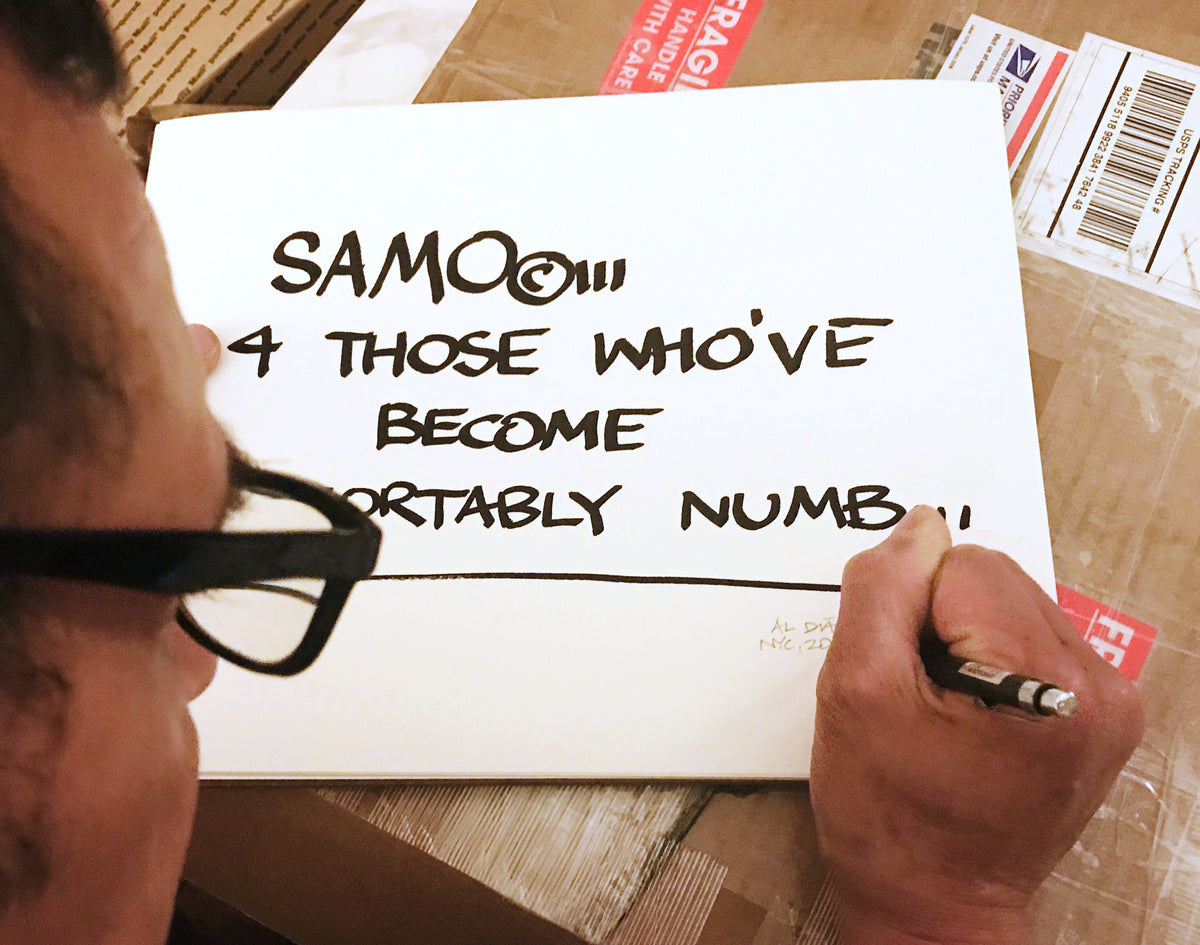 FRAGILE
HANDLE
WITH CARE
PRIORITY
USPS TRACKING #
9405 5118 9922 3841 7842 48
SAMO©...
4 THOSE WHO'VE
BECOME
ORTABLY NUMB...
AL DIA
NYC, 20